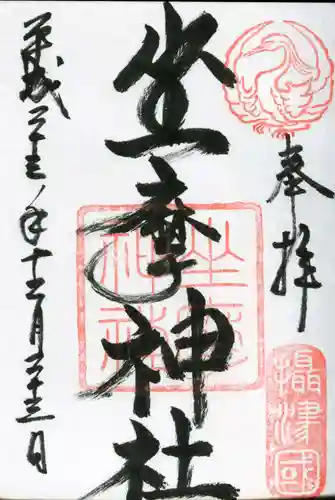 奉拝
摂津國
坐摩神社
坐摩神社
平成二十三年十二月二十三日